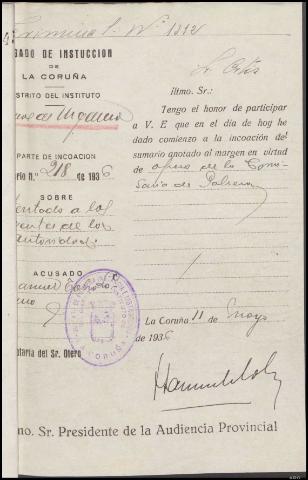 Nº 1312
GADO DE INSTUCCION
DE
LA CORUÑA
STRITO DEL INSTITUTO
PARTE DE INCOACION
rio N.º 218 de 1936
SOBRE
tentado a los
entes de la
autoridad
ACUSADO
anuel
LA CORUÑA
taria del Sr. Otero
Iltmo. Sr.:
Tengo el honor de participar
a V. E que en el día de hoy he
dado comienzo a la incoación del
sumario anotado al margen en virtud
de oficio de la Comi
saría de
La Coruña 11 de Mayo
de 1936
no. Sr. Presidente de la Audiencia Provincial